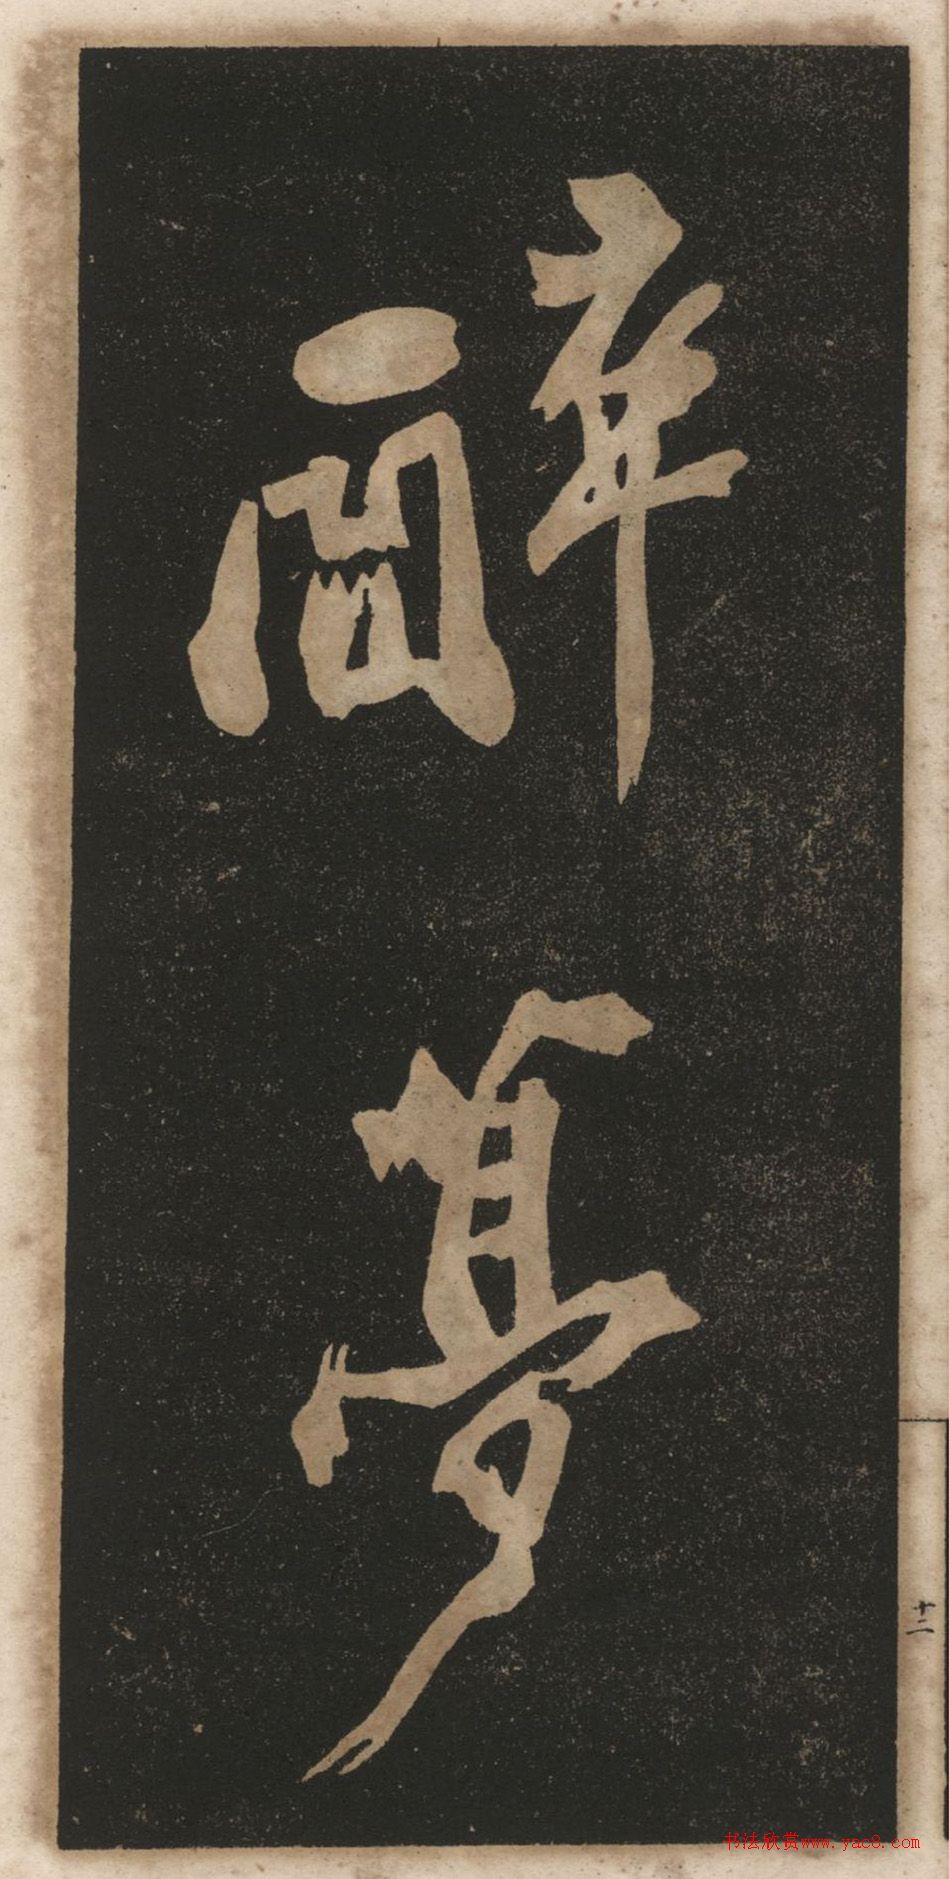 醉
夢
十二
书法欣赏www.yac8.com